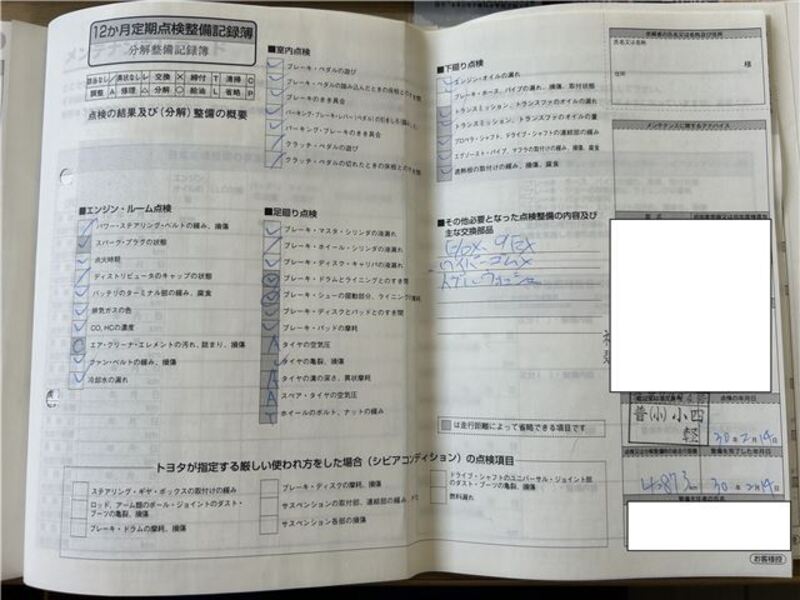 12か月定期点検整備記録簿
分解整備記録簿
該当なし／ 異状なしレ 交換✕ 締付T 清掃C
調整A 修理△ 分解○ 給油L 省略P
点検の結果及び(分解)整備の概要
■エンジン・ルーム点検
パワー・ステアリング・ベルトの緩み、損傷
スパーク・プラグの状態
点火時期
ディストリビュータのキャップの状態
バッテリのターミナル部の緩み、腐食
排気ガスの色
CO、HCの濃度
エア・クリーナ・エレメントの汚れ、詰まり、損傷
ファン・ベルトの緩み、損傷
冷却水の漏れ
■室内点検
ブレーキ・ペダルの遊び
ブレーキ・ペダルの踏み込んだときの床板とのすき間
ブレーキのきき具合
パーキング・ブレーキ・レバー(ペダル)の引きしろ(踏みしろ)
パーキング・ブレーキのきき具合
クラッチ・ペダルの遊び
クラッチ・ペダルの切れたときの床板とのすき間
■足廻り点検
ブレーキ・マスタ・シリンダの液漏れ
ブレーキ・ホイール・シリンダの液漏れ
ブレーキ・ディスク・キャリパの液漏れ
ブレーキ・ドラムとライニングとのすき間
ブレーキ・シューの摺動部分、ライニングの摩耗
ブレーキ・ディスクとパッドとのすき間
ブレーキ・パッドの摩耗
タイヤの空気圧
タイヤの亀裂、損傷
タイヤの溝の深さ、異状摩耗
スペア・タイヤの空気圧
ホイールのボルト、ナットの緩み
■下廻り点検
エンジン・オイルの漏れ
ブレーキ・ホース、パイプの漏れ、損傷、取付状態
トランスミッション、トランスファのオイルの漏れ
トランスミッション、トランスファのオイルの量
プロペラ・シャフト、ドライブ・シャフトの連結部の緩み
エグゾースト・パイプ、マフラの取付けの緩み、損傷、腐食
遮熱板の取付けの緩み、損傷、腐食
■その他必要となった点検整備の内容及び
主な交換部品
ワイパーゴムX
は走行距離によって省略できる項目です
トヨタが指定する厳しい使われ方をした場合（シビアコンディション）の点検項目
ステアリング・ギヤ・ボックスの取付けの緩み
ロッド、アーム類のボール・ジョイントのダスト・
ブーツの亀裂、損傷
ブレーキ・ドラムの摩耗、損傷
ブレーキ・ディスクの摩耗、損傷
サスペンションの取付部、連結部の緩み
サスペンション各部の損傷
ドライブ・シャフトのユニバーサル・ジョイント部
のダスト・ブーツの亀裂、損傷
燃料漏れ
依頼者の氏名又は名称及び住所
氏名又は名称
様
住所
メンテナンスに関するアドバイス
点検の年月日
普(小)小四
軽
30年2月14日
整備を完了した年月日
30年2月14日
お客様控